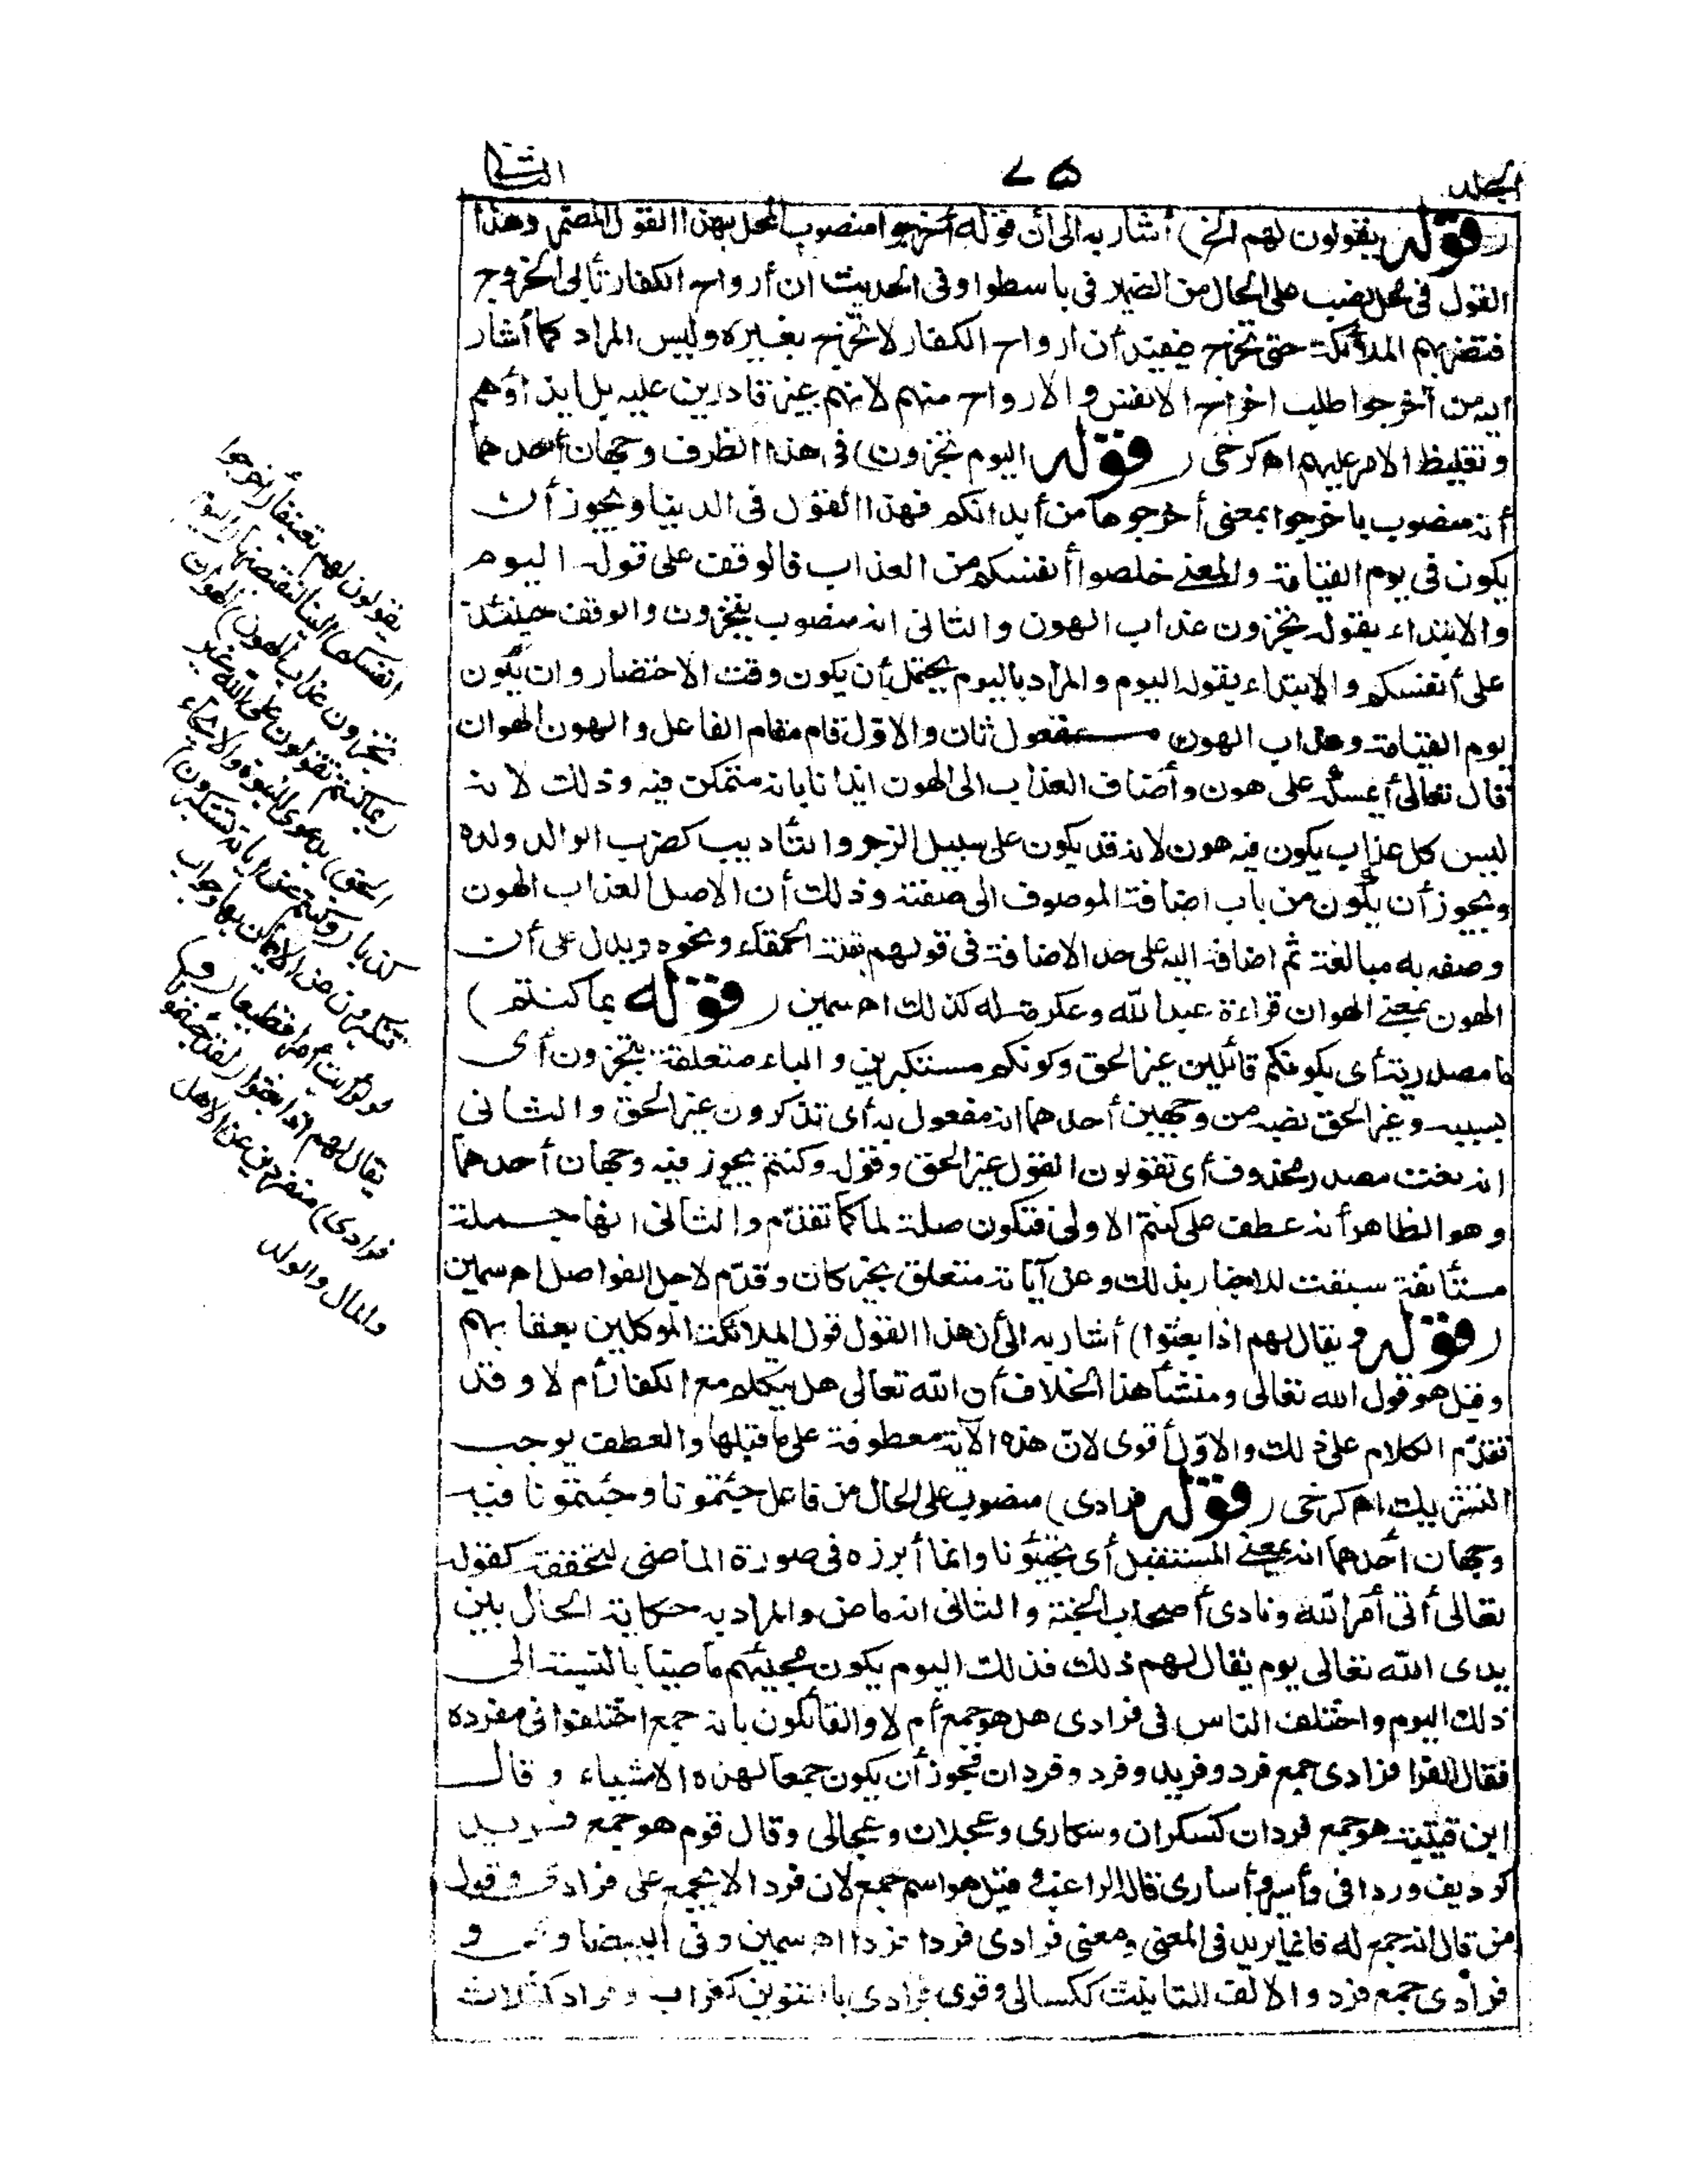 الجلد ٧٥ الثانى
(قوله يقولون لهم الخ) أشار به الى أن قوله أخرجوا منصوب المحل بهذا القول المضمر وهذا
القول فى محل نصب على الحال من الضمير فى باسطوا وفى الحديث ان أرواح الكفار تأبى الخروج
فتضربهم الملائكة حتى تخرج فيفيد أن أرواح الكفار لا تخرج بغيره وليس المراد كما أشار
اليه من أخرجوا طلب اخراج الانفس والارواح منهم لانهم غير قادرين عليه بل ايذاؤهم
وتغليظ الامر عليهم اه كرخى (قوله اليوم تجزون) فى هذا الظرف وجهان أحدهما
أنه منصوب باخرجوا بمعنى أخرجوها من أبدانكم فهذا القول فى الدنيا ويجوز أن
يكون فى يوم القيامة والمعنى خلصوا أنفسكم من العذاب فالوقف على قوله اليوم
والابتداء بقوله تجزون عذاب الهون والثانى انه منصوب بتجزون والوقف حينئذ
على أنفسكم والابتداء بقوله اليوم والمراد باليوم يحتمل أن يكون وقت الاحتضار وان يكون
يوم القيامة وعذاب الهون مفعول ثان والاول قام مقام الفاعل والهون الهوان
قال تعالى أيمسكه على هون وأضاف العذاب الى الهون ايذانا بانه متمكن فيه وذلك لانه
ليس كل عذاب يكون فيه هون لانه قد يكون على سبيل الزجر والتأديب كضرب الوالد ولده
ويجوز أن يكون من باب اضافة الموصوف الى صفته وذلك أن الاصل العذاب الهون
وصفه به مبالغة ثم اضافه اليه على حد الاضافة فى قولهم بقلة الحمقاء ونحوه ويدل على أن
الهون بمعنى الهوان قراءة عبد الله وعكرمة له كذلك اه سمين (قوله بما كنتم)
ما مصدرية أى بكونكم قائلين غير الحق وكونكم مستكبرين والباء متعلقة بتجزون أى
بسببه وغير الحق نصبه من وجهين أحدهما انه مفعول به أى تذكرون غير الحق والثانى
انه نعت مصدر محذوف أى تقولون القول غير الحق وقوله وكنتم يجوز فيه وجهان أحدهما
وهو الظاهر أنه عطف على كنتم الاولى فتكون صلة لما كما تقدم والثانى انها جملة
مستأنفة سيقت للاخبار بذلك وعن آياته متعلق بخبر كان وقدم لاجل الفواصل اه سمين
(قوله ويقال لهم اذا بعثوا) أشار به الى أن هذا القول قول الملائكة الموكلين بعقابهم
وقيل هو قول الله تعالى ومنشأ هذا الخلاف أن الله تعالى هل يتكلم مع الكفار أم لا وقد
تقدم الكلام على ذلك والاول أقوى لان هذه الآية معطوفة على ما قبلها والعطف يوجب
التشريك اه كرخى (قوله فرادى) منصوب على الحال من فاعل جئتمونا وجئتمونا فيه
وجهان أحدهما انه بمعنى المستقبل أى تجيئونا وانما أبرزه فى صورة الماضى لتحققه كقوله
تعالى أتى أمر الله ونادى أصحاب الجنة والثانى انه ماض والمراد به حكاية الحال بين
يدى الله تعالى يوم يقال لهم ذلك فذلك اليوم يكون مجيئهم ماضيا بالنسبة الى
ذلك اليوم واختلف الناس فى فرادى هل هو جمع أم لا والقائلون بانه جمع اختلفوا فى مفرده
فقال الفرا فرادى جمع فرد وفريد وفرد وفردان فيجوز أن يكون جمعا لهذه الاشياء وقال
ابن قتيبة هو جمع فردان كسكران وسكارى وعجلان وعجالى وقال قوم هو جمع فريد
كرديف وردافى وأسير وأسارى قاله الراغب وقيل هو اسم جمع لان فردا لا يجمع على فرادى وقول
من قال انه جمع له فانما يريد فى المعنى ومعنى فرادى فردا فردا اه سمين وفى البيضاوى و
فرادى جمع فرد والالف للتانيث ككسالى وقرئ فرادى بالتنوين كغراب وفراد كثلاث
يقولون لهم تعنيفا (أخرجوا
أنفسكم) الينا لنقبضها (اليوم
تجزون عذاب الهون) الهوان
(بما كنتم تقولون على الله غير
الحق) بدعوى النبوة والايحاء
كذبا (وكنتم عن آياته تستكبرون)
تتكبرون عن الايمان بها وجواب
لو لرأيت أمرا فظيعا (و)
يقال لهم اذا بعثوا (لقد جئتمونا
فرادى) منفردين عن الاهل
والمال والولد